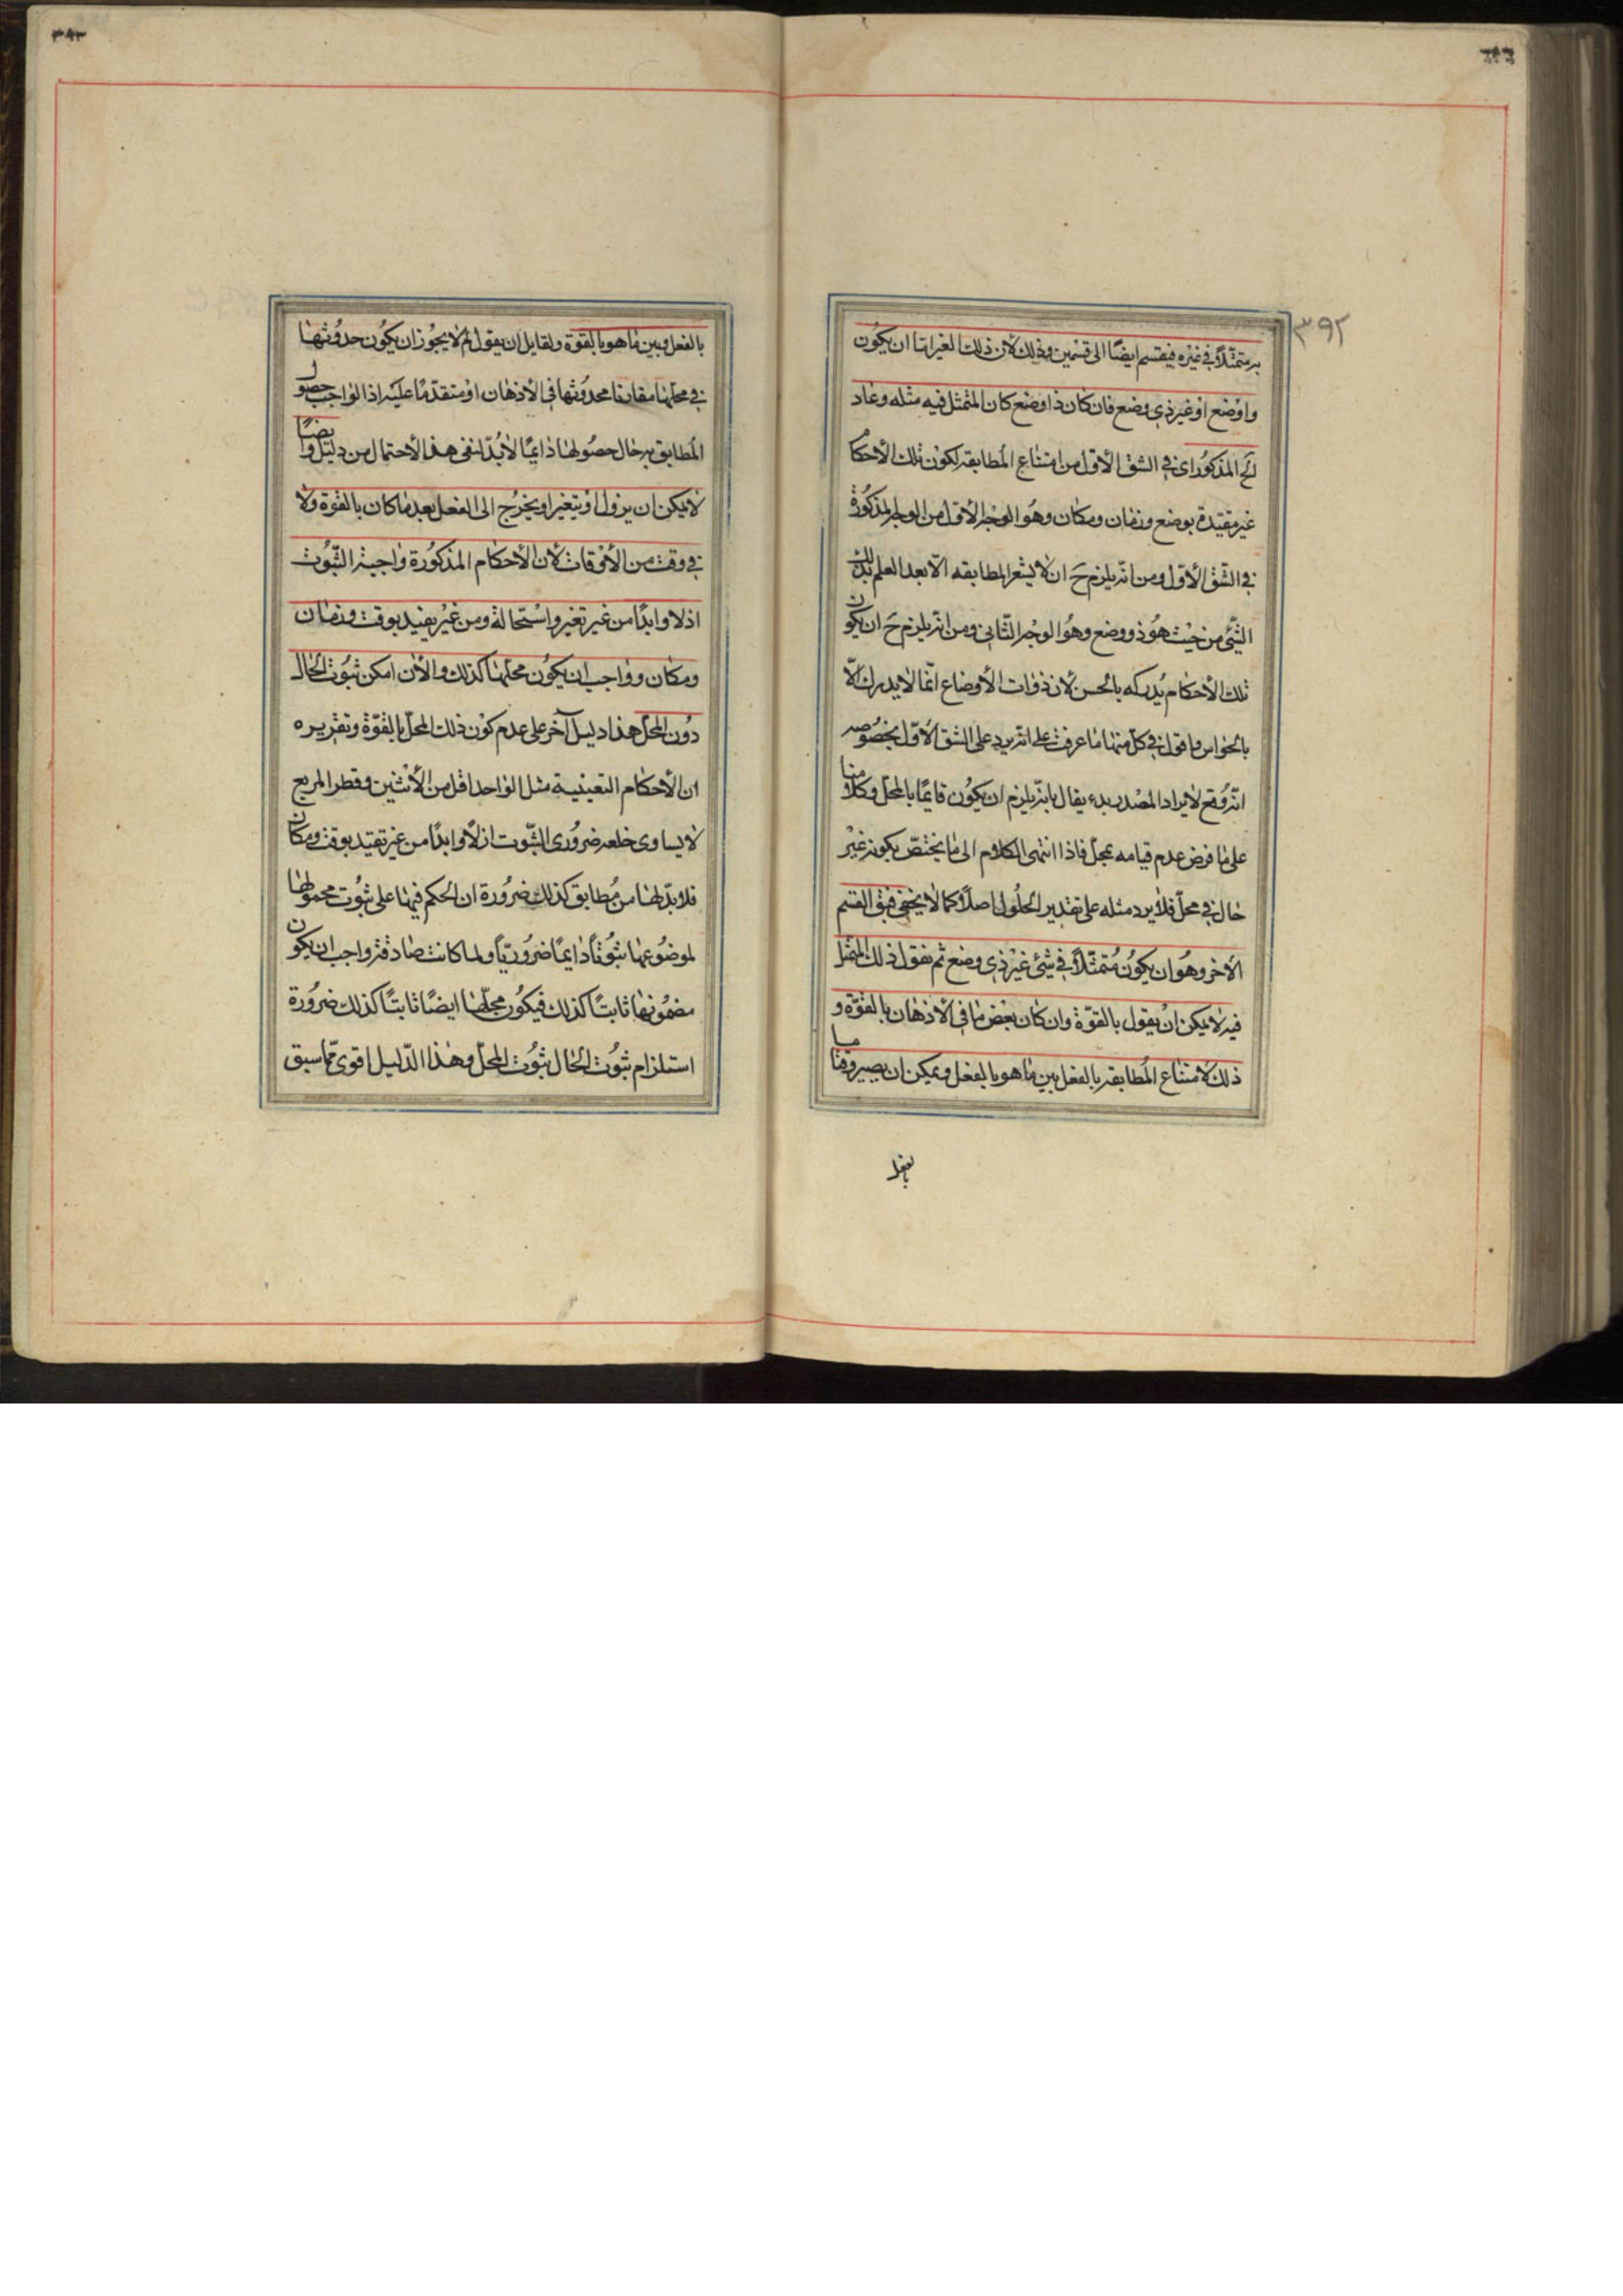 ٣٩٢
به متمثلاً في غيره فينقسم ايضًا الى قسمين وذلك لان ذلك الغير اما ان يكون
واوضع او غير ذي وضع فان كان ذا وضع كان المتمثل فيه مثله وعاد
لح المذكور اى في الشق الأول من امتناع المطابقه لكون تلك الأحكام
غير مقيدة بوضع وزمان ومكان وهو الوجه الأول من الوجه المذكورة
في الشق الأول ومن انه يلزم ح ان لا يشعر المطابقه الا بعد العلم بذلك
الشئ من حيث هو ذو وضع وهو الوجه الثاني ومن انه يلزم ح ان يكون
تلك الأحكام يدركه بالحس لان ذوات الأوضاع انما لا يدرك الا
بالحواس واقول في كل منهما ما عرفت على انه يرد على الشق الأول بخصوصه
انه وقع لايراد المصدر بدء يقال بانه يلزم ان يكون قايمًا بالمحل وكلامنا
على ما فرض عدم قيامه بمحل فاذا انتهى الكلام الى ما يختص بكونه غير
حال في محل فلا يرد مثله على تقدير الحلول اصلاً كما لا يخفى فبقى القسم
الأخر وهو ان يكون متمثلاً في شئ غير ذي وضع ثم نقول ذلك المتمثل
فيه لا يمكن ان يقول بالقوة وان كان بعض ما في الأذهان بالقوة و
ذلك لامتناع المطابقه بالفعل بين ما هو بالفعل ويمكن ان يصير وقتا ما
بالفعل
بالفعل وبين ما هو بالقوة ولقايل ان يقول لم لا يجوز ان يكون حدوثها
في محلها مقارنا محدوثها في الأذهان او متقدمًا عليه اذ الواجب حصول
المطابق به حال حصولها دايمًا لا بد لنفى هذا الأحتمال من دليل وايضًا
لا يمكن ان يزول او يتغير او يخرج الى الفعل بعد ما كان بالقوة ولا
في وقت من الأوقات لأن الأحكام المذكورة واجبة الثبوت
اذلا وابدًا من غير تغير واستحالة ومن غير يقيد بوقت وزمان
ومكان وواجب ان يكون محلها كذلك والا لان امكن ثبوت الحال
دون المحل هذا دليل آخر على عدم كون ذلك المحل بالقوة وتقريره
ان الأحكام التعينية مثل الواحد اقل من الأثنين وقطر المربع
لا يساوى ضلعه ضرورى الثبوت ازلاً وابدًا من غير تقيد بوقت ومكان
فلا بد لها من مطابق كذلك ضرورة ان الحكم فيها على ثبوت محمولها
لموضوعها ثبوتًا دايمًا ضروريًا ولما كانت صادقة واجب ان يكون
مضمونها ثابتًا كذلك فيكون محلها ايضًا ثابتًا كذلك ضرورة
استلزام ثبوت الحال ثبوت المحل وهذا الدليل اقوى مما سبق